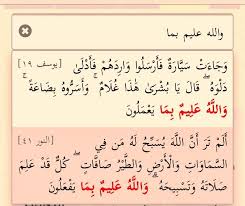 والله عليم بما
وَجَاءَتْ سَيَّارَةٌ فَأَرْسَلُوا وَارِدَهُمْ فَأَدْلَىٰ [يوسف ١٩]
دَلْوَهُ ۖ قَالَ يَا بُشْرَىٰ هَٰذَا غُلَامٌ ۚ وَأَسَرُّوهُ بِضَاعَةً ۚ
وَاللَّهُ عَلِيمٌ بِمَا يَعْمَلُونَ
أَلَمْ تَرَ أَنَّ اللَّهَ يُسَبِّحُ لَهُ مَن فِي [النور ٤١]
السَّمَاوَاتِ وَالْأَرْضِ وَالطَّيْرُ صَافَّاتٍ ۖ كُلٌّ قَدْ عَلِمَ
صَلَاتَهُ وَتَسْبِيحَهُ ۗ وَاللَّهُ عَلِيمٌ بِمَا يَفْعَلُونَ